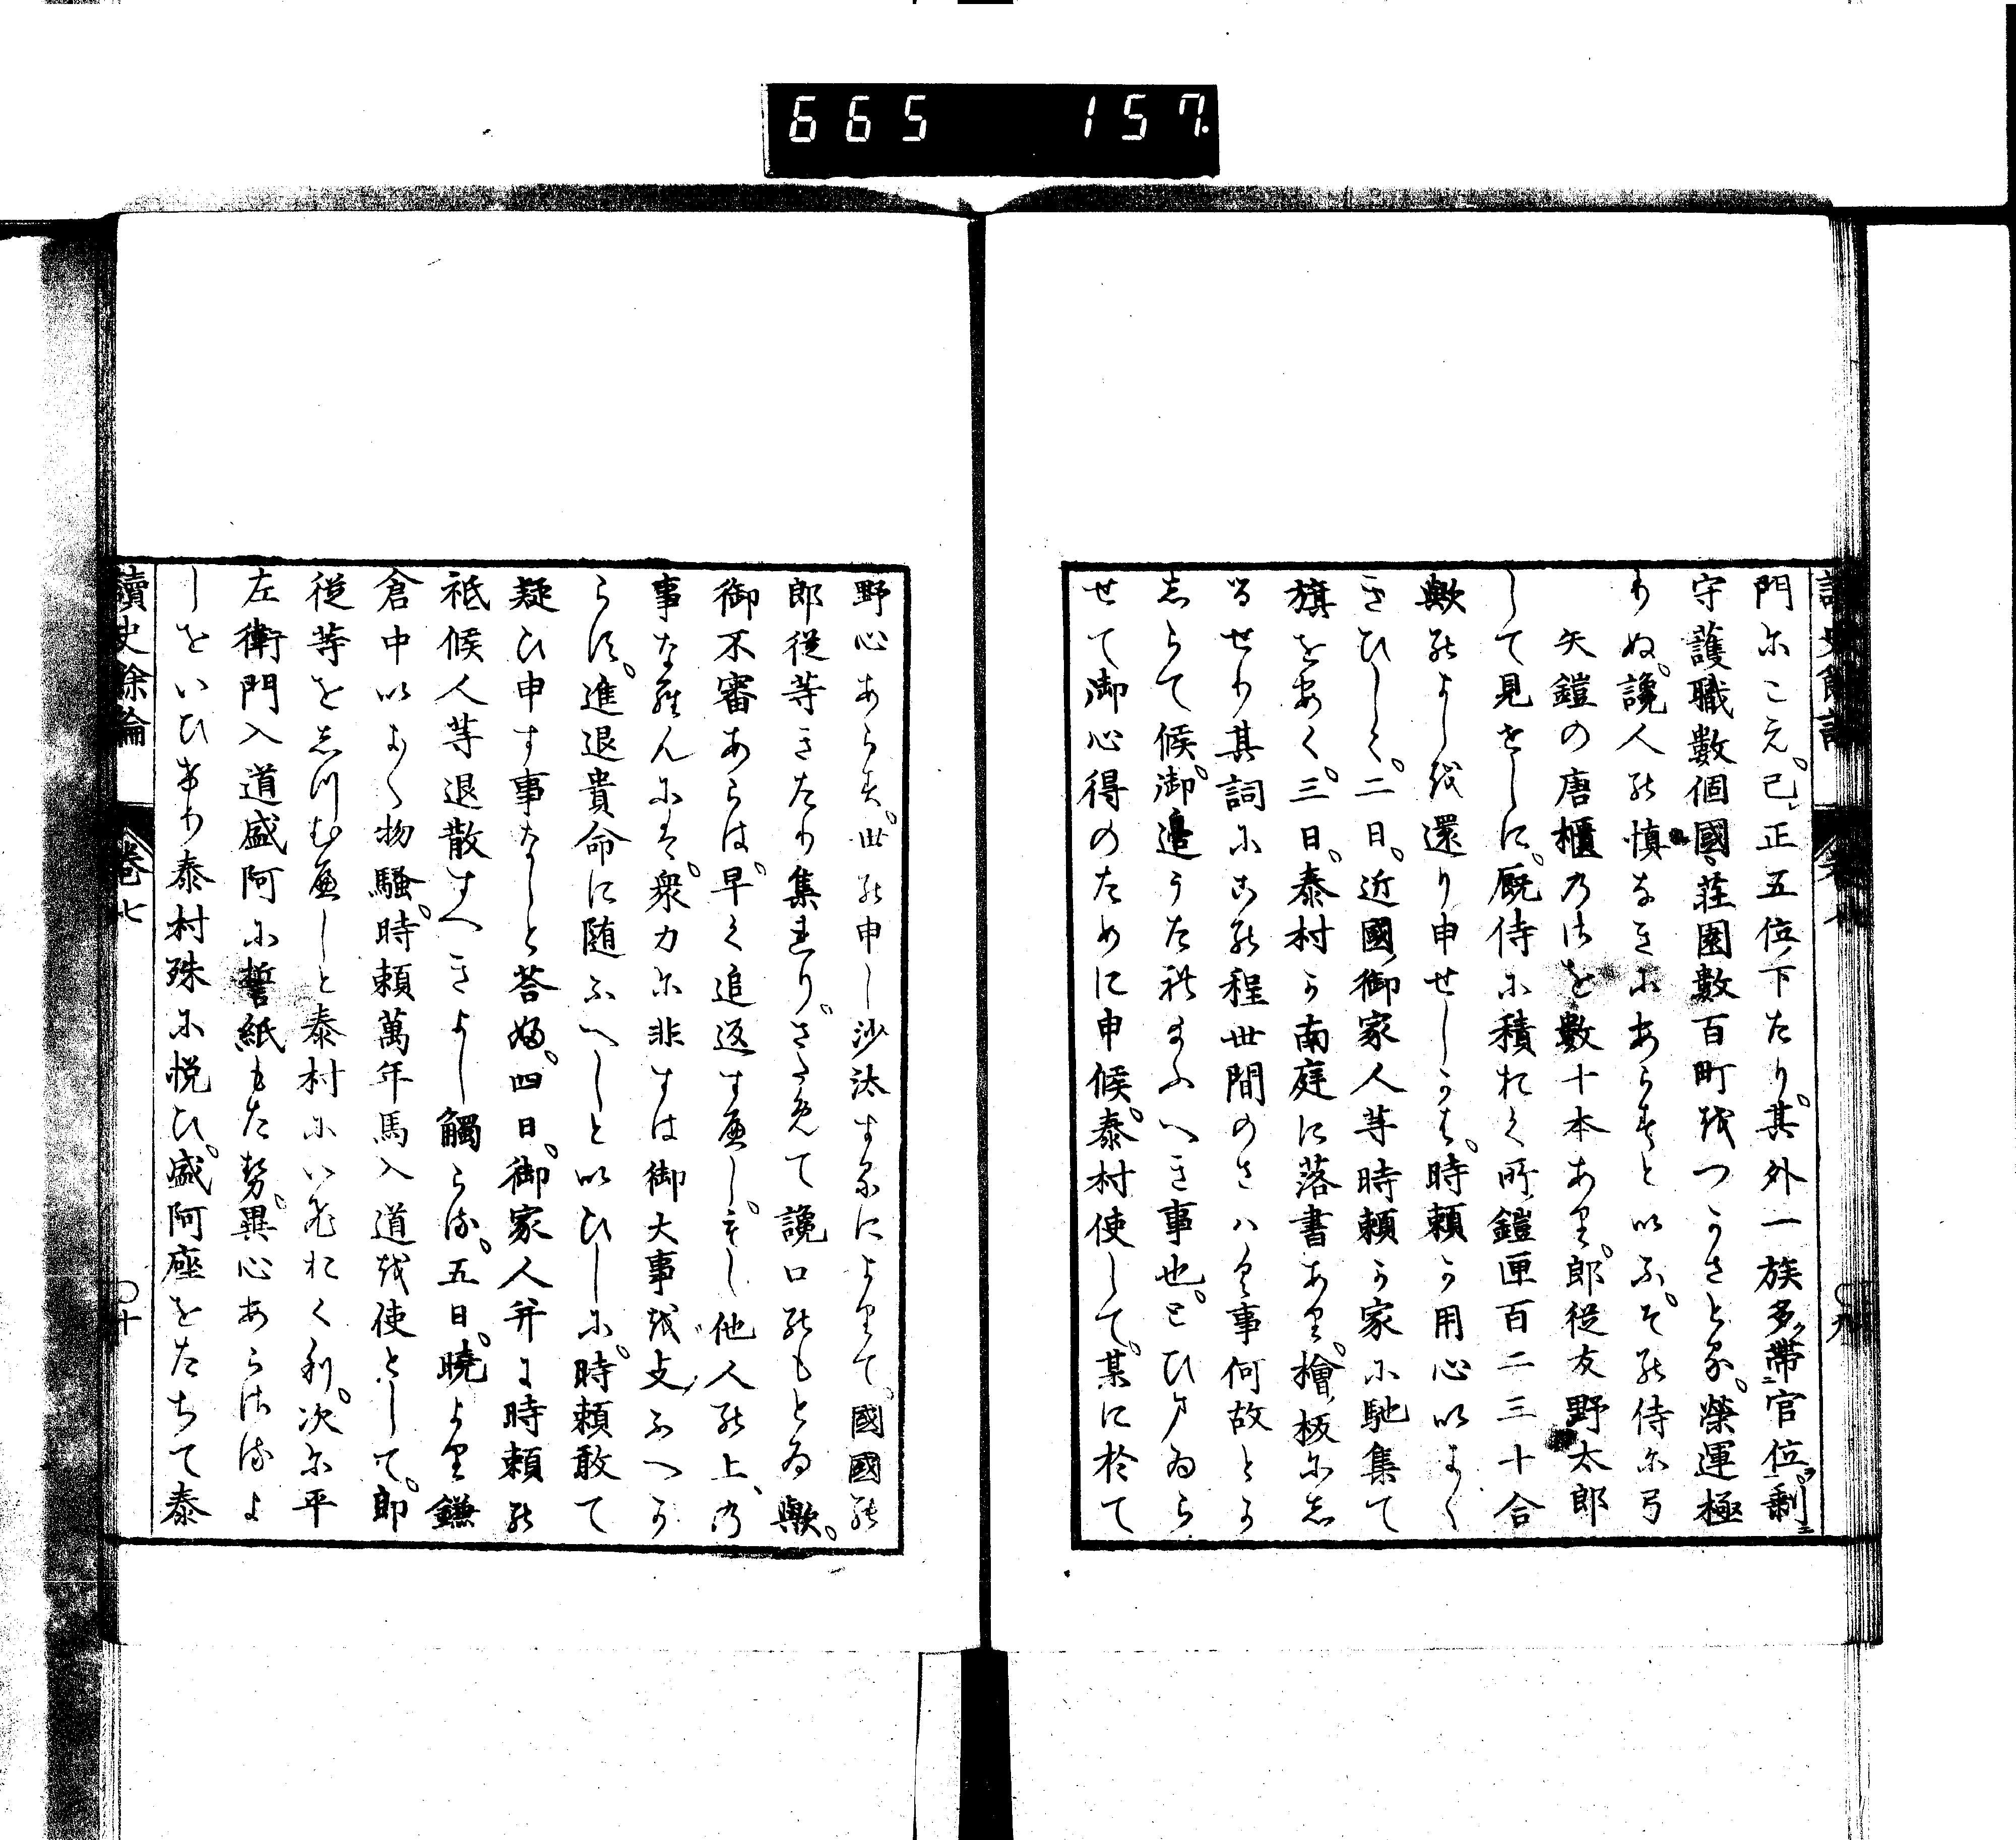 665 157
門にこえ。已正五位下たり。其外一族多帶官位。剩
守護職數個國。荘園數百町をつかさとる。榮運極
りぬ。讒人の慎なきにあらすと以ふ。その侍に弓
矢鎧の唐櫃のはを數十本あり。郎従友野太郎
して見せしに。厩侍に積おく所鎧匣百二三十合
歟のよしを還り申せしかは。時頼か用心以よく
きひしく。二日。近國御家人等時頼か家に馳集て
旗をあく。三日。泰村か南庭に落書あり。檜板にし
るせり其詞にこの程世間のさハく事何故とか
しらて候。御邉うたれ給ふへき事也。とひまゐら
せて御心得のために申候。泰村使して。某に於て
野心あらす。世の申し沙汰するによりて。國國の
郎従等きたり集まり。さためて讒口のもとゐ歟。
御不審あらは。早く追返すへし。もし他人の上の
事ならんにそ。衆力に非すは御大事を支ふへか
らす。進退貴命に随ふへしと以ひしに。時頼敢て
疑ひ申す事なしと荅ぬ。四日。御家人并に時頼の
祗候人等退散すへきよし觸らる。五日。曉より鎌
倉中以よく物騒。時頼萬年馬入道を使として。郎
従等をしつむへしと泰村にいはれ
次に平
左衛門入道盛阿に誓紙もた勢。異心あらさるよ
しをいひけり泰村殊に悦ひ。盛阿座をたちて泰
讀史餘論 卷七 〇十